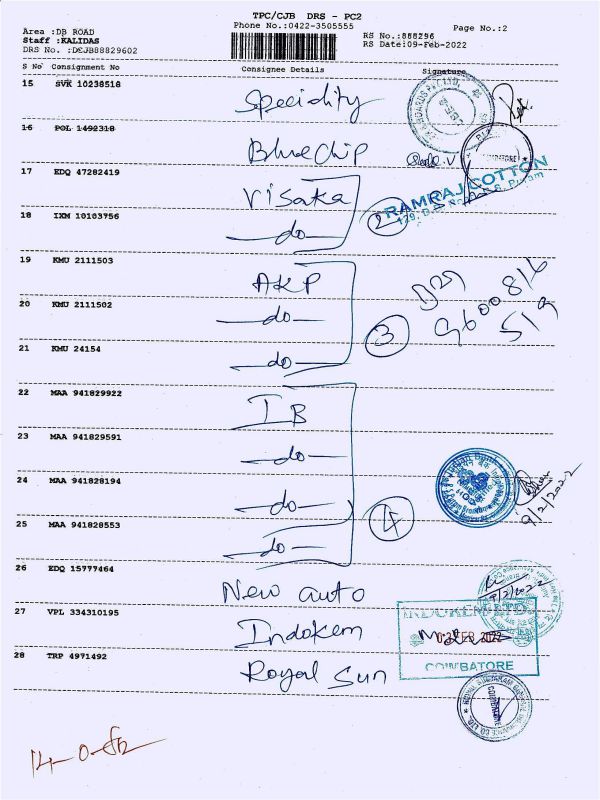 TPC/CJB DRS - PC2
Area :DB ROAD Phone No.:0422-3505555 Page No.:2
Staff :KALIDAS RS No.:888296
DRS No. :DEJB88829602 RS Date:09-Feb-2022
S No Consignment No Consignee Details Signature
15 SVK 10238518 Speciality
16 POL 1492318 Bluechip
17 EDQ 47282419 Visaka
RAMRAJ COTTON
18 IXM 10103756 —do— 2
19 KMU 2111503 AKP
20 KMU 2111502 —do— 3
21 KMU 24154 —do—
22 MAA 941829922 IB
23 MAA 941829591 —do—
24 MAA 941828194 —do—
9/2/2022
25 MAA 941828553 —do— 4
26 EDQ 15777464 New auto
9/2/2022
27 VPL 334310195 Indokem
INDOKEM LTD
FEB 2022
COIMBATORE
28 TRP 4971492 Royal Sun